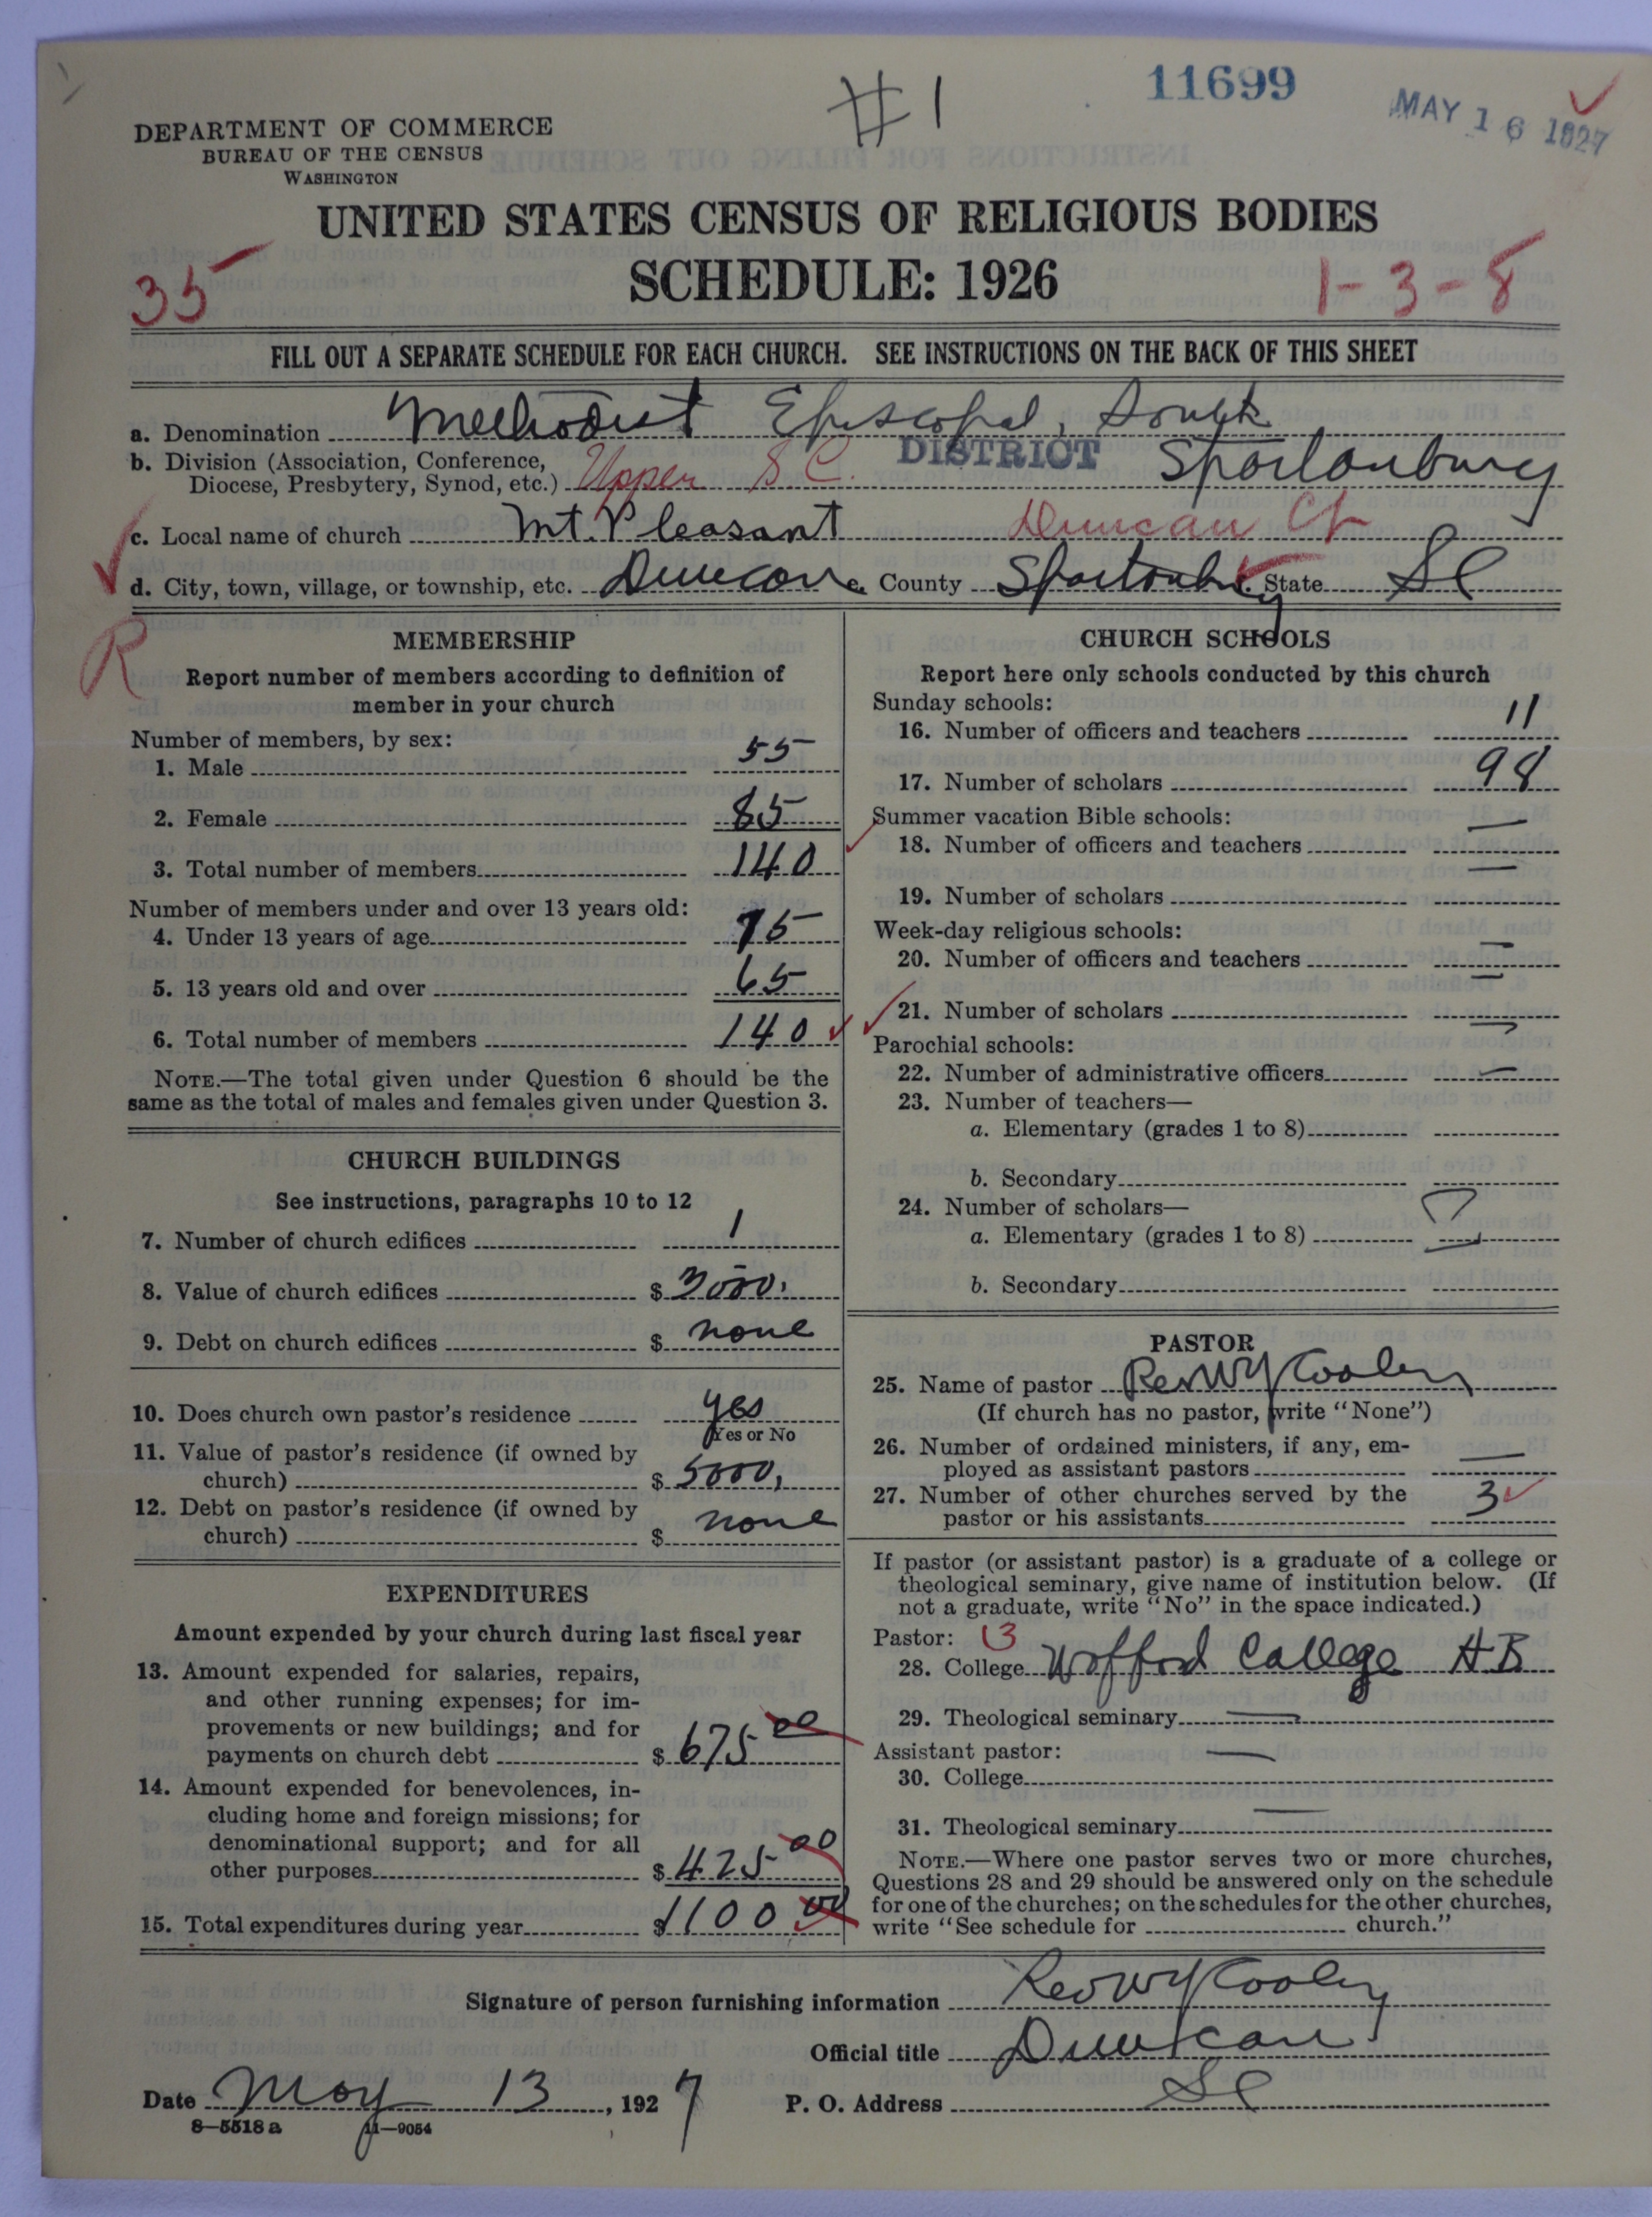 #1
11699
MAY 16 1927
DEPARTMENT OF COMMERCE
BUREAU OF THE CENSUS
WASHINGTON
UNITED STATES CENSUS OF RELIGIOUS BODIES
SCHEDULE: 1926
35
1-3-8
FILL OUT A SEPARATE SCHEDULE FOR EACH CHURCH. SEE INSTRUCTIONS ON THE BACK OF THIS SHEET
a. Denomination Methodist Episcopal, South
b. Division (Association, Conference,
Diocese, Presbytery, Synod, etc.) Upper S C. DISTRICT Spartanburg
c. Local name of church Mt. Pleasant Duncan Ch
d. City, town, village, or township, etc. Duncan e. County Spartanburg State S C
R
MEMBERSHIP
Report number of members according to definition of
member in your church
Number of members, by sex:
1. Male 55
2. Female 85
3. Total number of members 140
Number of members under and over 13 years old:
4. Under 13 years of age 75
5. 13 years old and over 65
6. Total number of members 140
NOTE.—The total given under Question 6 should be the
same as the total of males and females given under Question 3.
CHURCH BUILDINGS
See instructions, paragraphs 10 to 12
7. Number of church edifices 1
8. Value of church edifices $ 3000.
9. Debt on church edifices $ none
10. Does church own pastor's residence yes
Yes or No
11. Value of pastor's residence (if owned by
church) $ 5000.
12. Debt on pastor's residence (if owned by
church) $ none
EXPENDITURES
Amount expended by your church during last fiscal year
13. Amount expended for salaries, repairs,
and other running expenses; for im-
provements or new buildings; and for
payments on church debt $ 675 00
14. Amount expended for benevolences, in-
cluding home and foreign missions; for
denominational support; and for all
other purposes $ 425 00
15. Total expenditures during year $ 1100 00
CHURCH SCHOOLS
Report here only schools conducted by this church
Sunday schools:
16. Number of officers and teachers 11
17. Number of scholars 98
Summer vacation Bible schools:
18. Number of officers and teachers —
19. Number of scholars —
Week-day religious schools:
20. Number of officers and teachers —
21. Number of scholars —
Parochial schools:
22. Number of administrative officers —
23. Number of teachers—
a. Elementary (grades 1 to 8)
b. Secondary
24. Number of scholars—
a. Elementary (grades 1 to 8)
b. Secondary
PASTOR
25. Name of pastor Rev W Y Cooley
(If church has no pastor, write "None")
26. Number of ordained ministers, if any, em-
ployed as assistant pastors —
27. Number of other churches served by the
pastor or his assistants 3
If pastor (or assistant pastor) is a graduate of a college or
theological seminary, give name of institution below. (If
not a graduate, write "No" in the space indicated.)
Pastor: 13
28. College Wofford College AB
29. Theological seminary —
Assistant pastor: —
30. College
31. Theological seminary —
NOTE.—Where one pastor serves two or more churches,
Questions 28 and 29 should be answered only on the schedule
for one of the churches; on the schedules for the other churches,
write "See schedule for church."
Signature of person furnishing information Rev W Y Cooley
Official title Duncan
Date May 13, 1927 P. O. Address S C
8—5518 a 11—9054